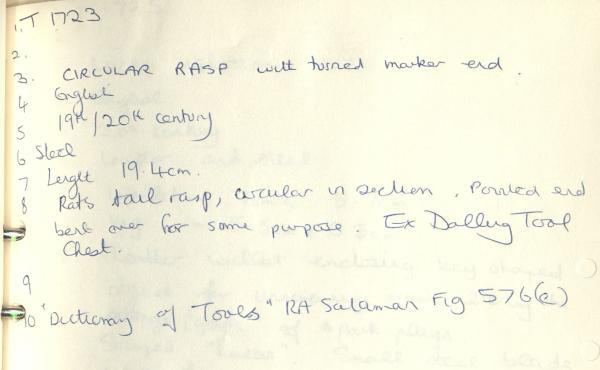 1. T 1723
2.
3. CIRCULAR RASP with turned marker end.
4 English
5 19th/20th century
6 Steel
7 Length 19.4cm.
8 Rats tail rasp, circular in section, Pointed end
bent over for some purpose. Ex Dalling Tool
Chest.
9
10 "Dictionary of Tools" RA Salaman Fig 576(e)